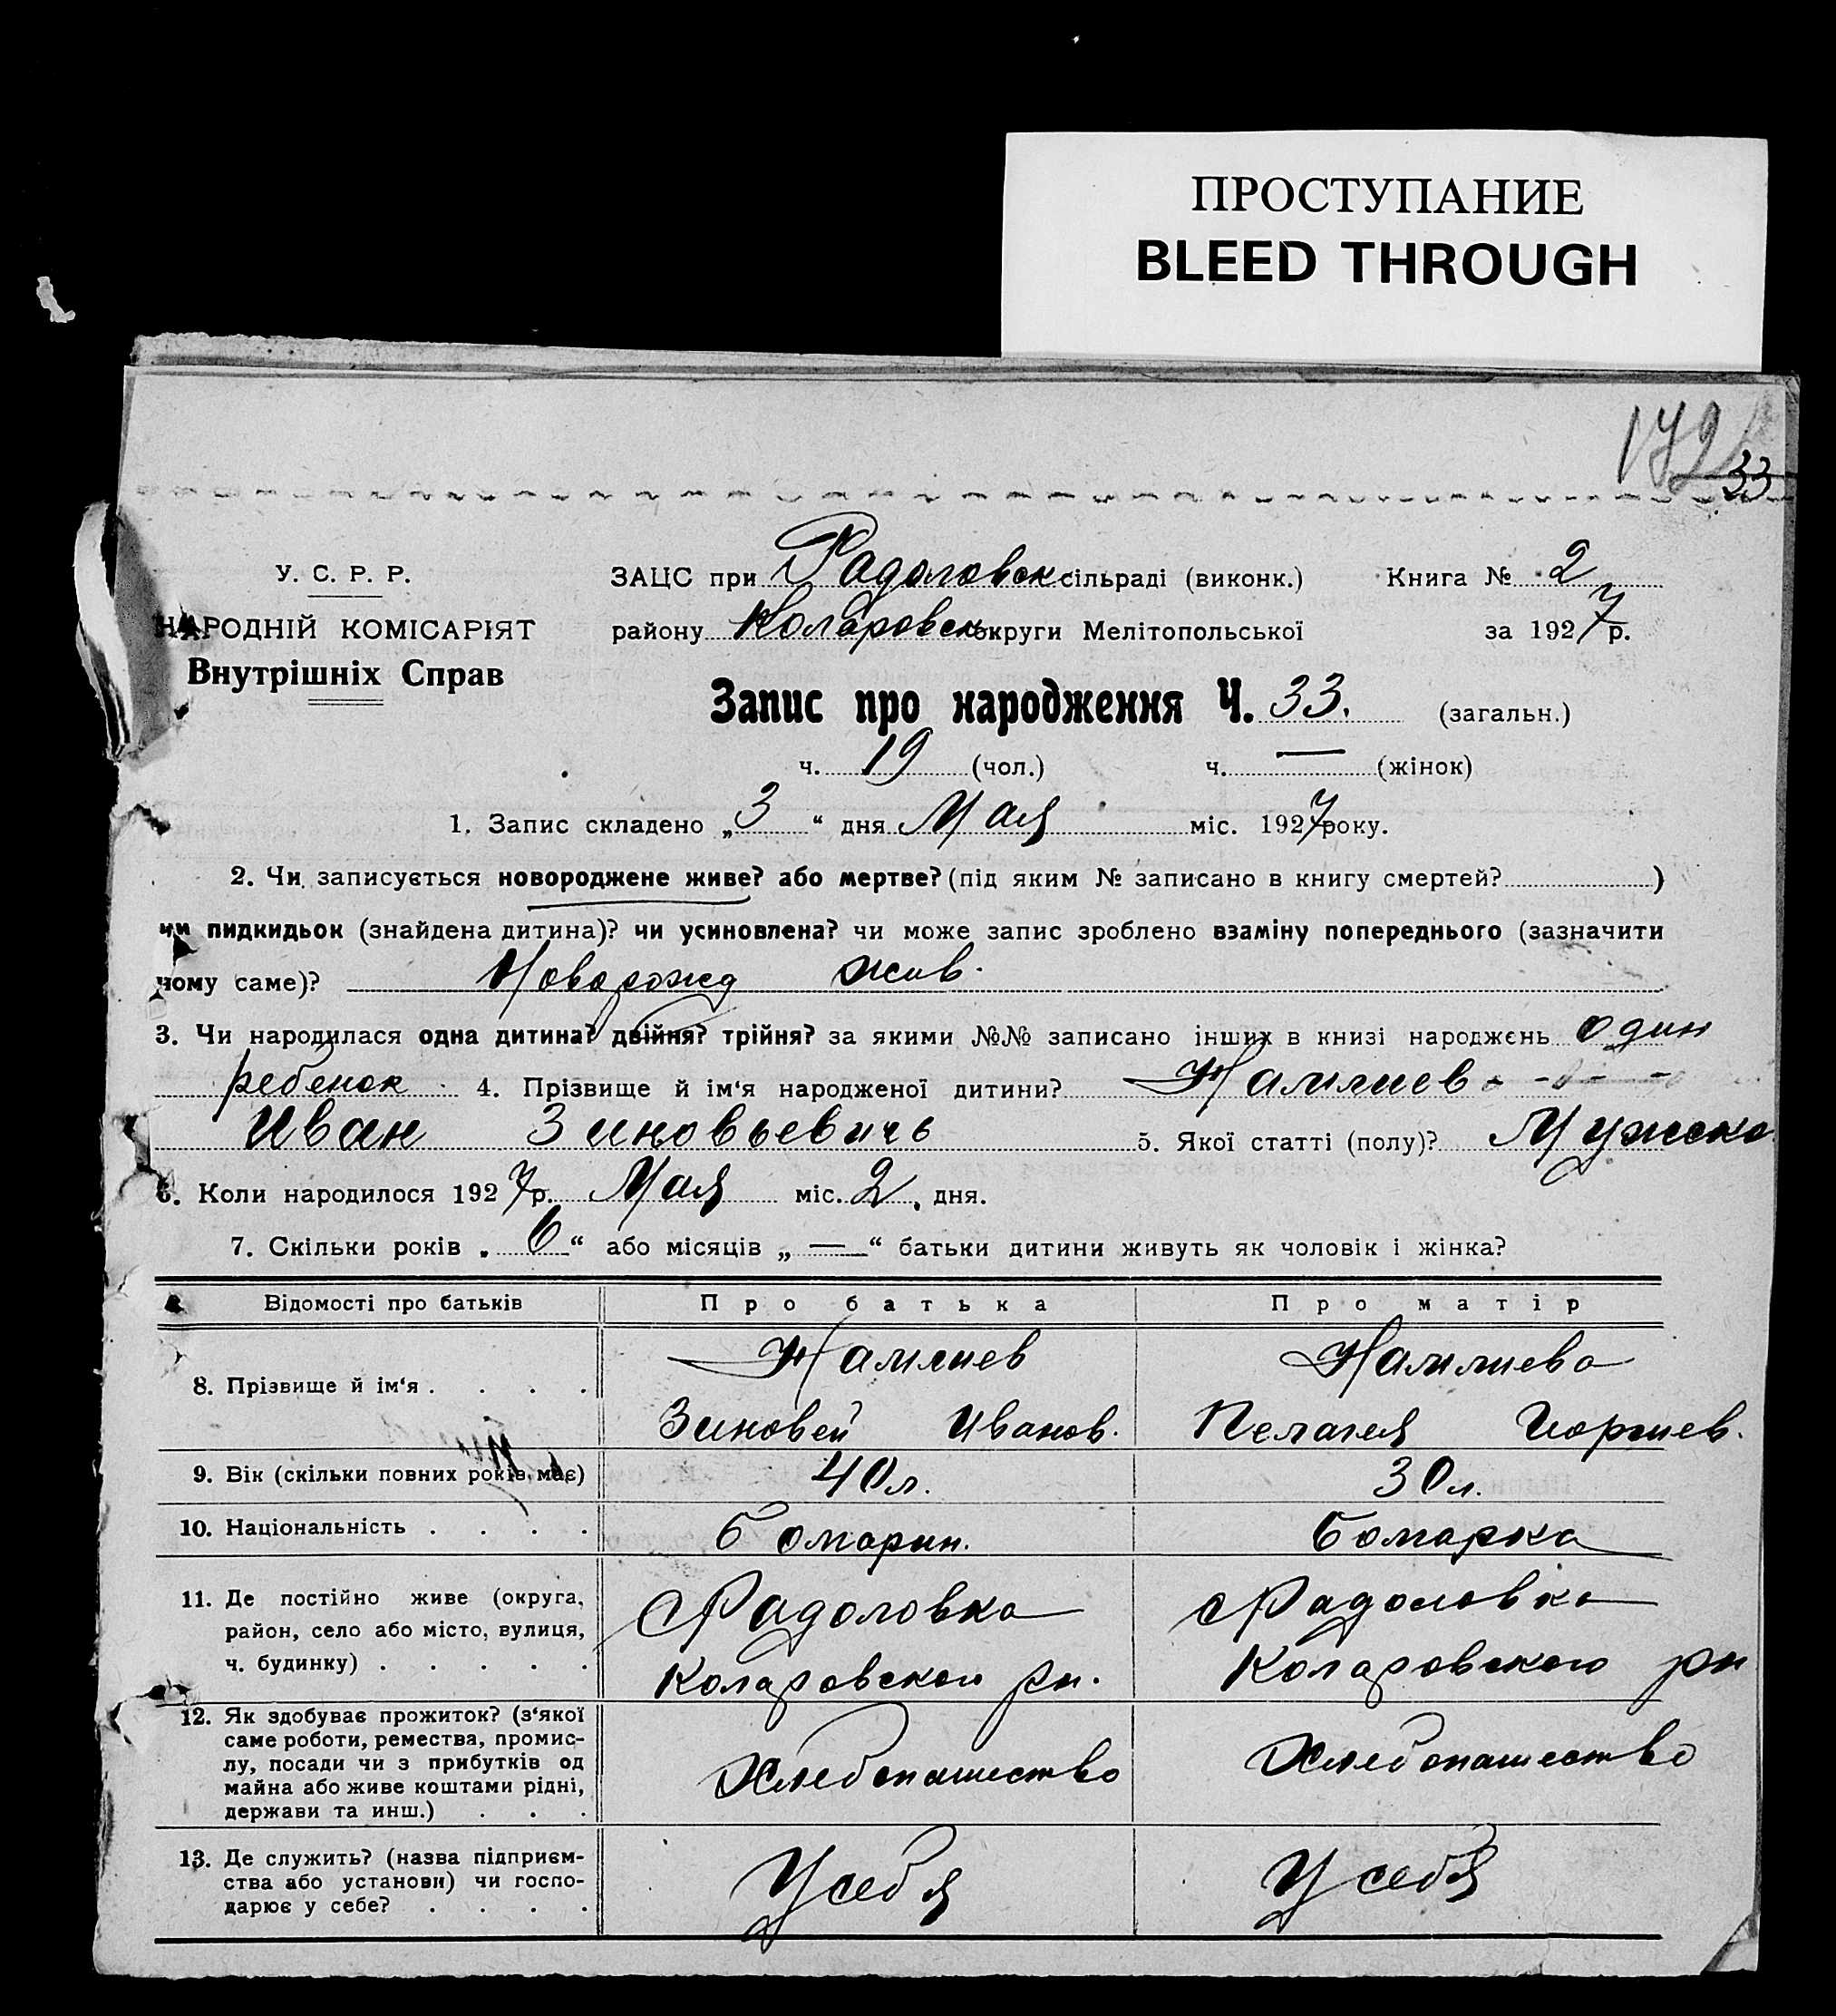 ПРОСТУПАНИЕ
BLEED THROUGH
172
33
У. С. Р. Р.
НАРОДНІЙ КОМІСАРІЯТ
Внутрішніх Справ
ЗАЦС при Радоловск сільраді (виконк.) Книга № 2
району Коларовск округи Мелітопольської за 1927 р.
Запис про народження Ч. 33. (загальн.)
ч. 19 (чол.) ч. — (жінок)
1. Запис складено „3“ дня Мая міс. 1927 року.
2. Чи записується новороджене живе? або мертве? (під яким № записано в книгу смертей? )
чи пидкидьок (знайдена дитина)? чи усиновлена? чи може запис зроблено взаміну попереднього (зазначити
чому саме)? Новорожд жив.
3. Чи народилася одна дитина? двійня? трійня? за якими №№ записано інших в книзі народжень один
ребенок 4. Прізвище й ім‘я народженої дитини?
Иван Зиновьевичь 5. Якої статті (полу)? Мужско
6. Коли народилося 1927 р. Мая міс. 2. дня.
7. Скільки років „6“ або місяців „—“ батьки дитини живуть як чоловік і жінка?
Відомості про батьків Про батька Про матір
8. Прізвище й ім‘я . . . .
Зиновей Иванов. Пелагея
9. Вік (скільки повних років має) 40 л. 30 л.
10. Національність . . . . Болгарин. Болгарка
11. Де постійно живе (округа,
район, село або місто, вулиця,
ч. будинку) . . . . .
Радоловка Радоловка
Коларовского рн. Коларовского рн
12. Як здобуває прожиток? (з‘якої
саме роботи, ремества, промис-
лу, посади чи з прибутків од
майна або живе коштами рідні,
держави та инш.) . . .
Хлебопашество Хлебопашество
13. Де служить? (назва підприєм-
ства або установи) чи госпо-
дарює у себе? . . . .
У себя У себя